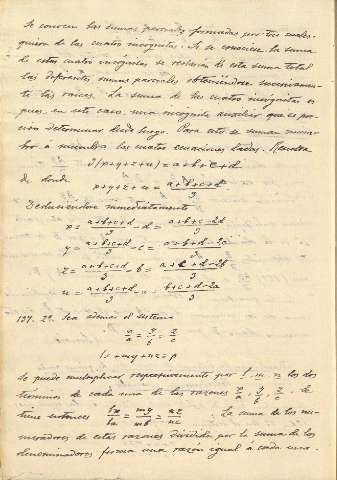 Se conocen las sumas parciales formadas por tres cuales-
quiera de las cuatro incógnitas. Si se conociera la suma
de estas cuatro incógnitas se restarían de esta suma total
las diferentes sumas parciales obteniéndose sucesivamen-
te las raices. La suma de las cuatro incógnitas es
pues, en este caso, una incógnita auxiliar que es pre-
ciso determinar desde luego. Para esto se suman miem-
bro á miembro las cuatro ecuaciones dadas. Resulta
3(x+y+z+u) = a+b+c+d
de donde
x+y+z+u = a+b+c+d/3
Deduciéndose inmediatamente
x = a+b+c+d/3 - d = a+b+c-2d/3
y = a+b+c+d/3 - c = a+b+d-2c/3
z = a+b+c+d/3 - b = a+c+d-2b/3
u = a+b+c+d/3 - a = b+c+d-2a/3
137. 2º. Sea ademas el sistema
x/a = y/b = z/c
lx+my+nz = p
Se puede multiplicar respectivamente por l, m, n los dos
términos de cada una de las razones x/a, y/b, z/c. Se
tiene entonces lx/la = my/mb = nz/nc. La suma de los nu-
meradores de estas razones dividida por la suma de los
denominadores forma una razón igual á cada una.